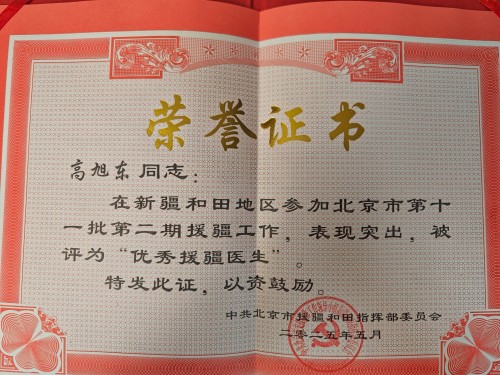 荣誉证书
高旭东 同志：
在新疆和田地区参加北京市第十
一批第二期援疆工作，表现突出，被
评为“优秀援疆医生”。
特发此证，以资鼓励。
中共北京市援疆和田指挥部委员会
二〇二五年五月